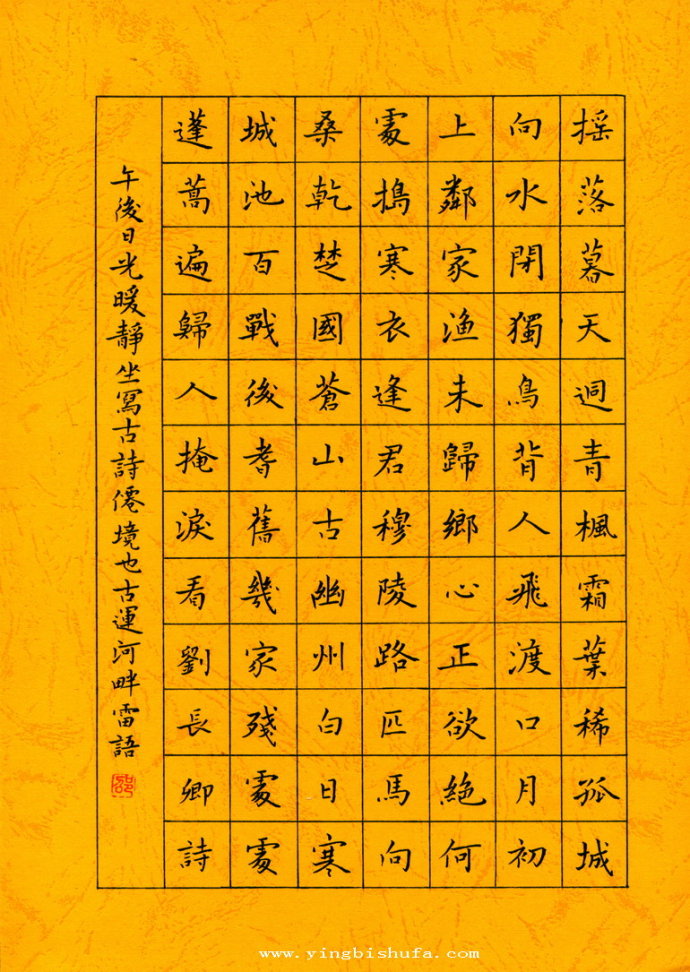 摇落暮天迥青楓霜葉稀孤城
向水閉獨鳥背人飛渡口月初
上鄰家渔未歸鄉心正欲絕何
處搗寒衣逢君穆陵路匹馬向
桑乾楚國蒼山古幽州白日寒
城池百戰後耆舊幾家殘處處
蓬蒿遍歸人掩淚看劉長卿詩
午後日光暖靜坐寫古詩僊境也古運河畔雷語
www.yingbishufa.com